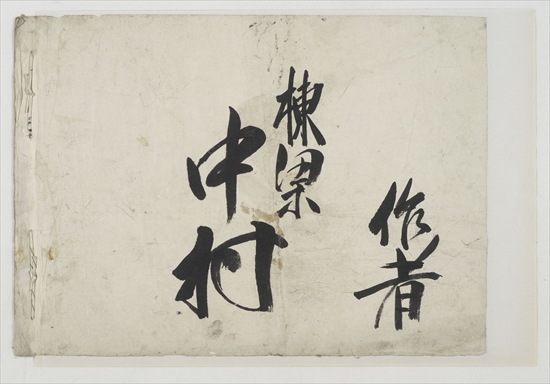 作者
棟梁
中村